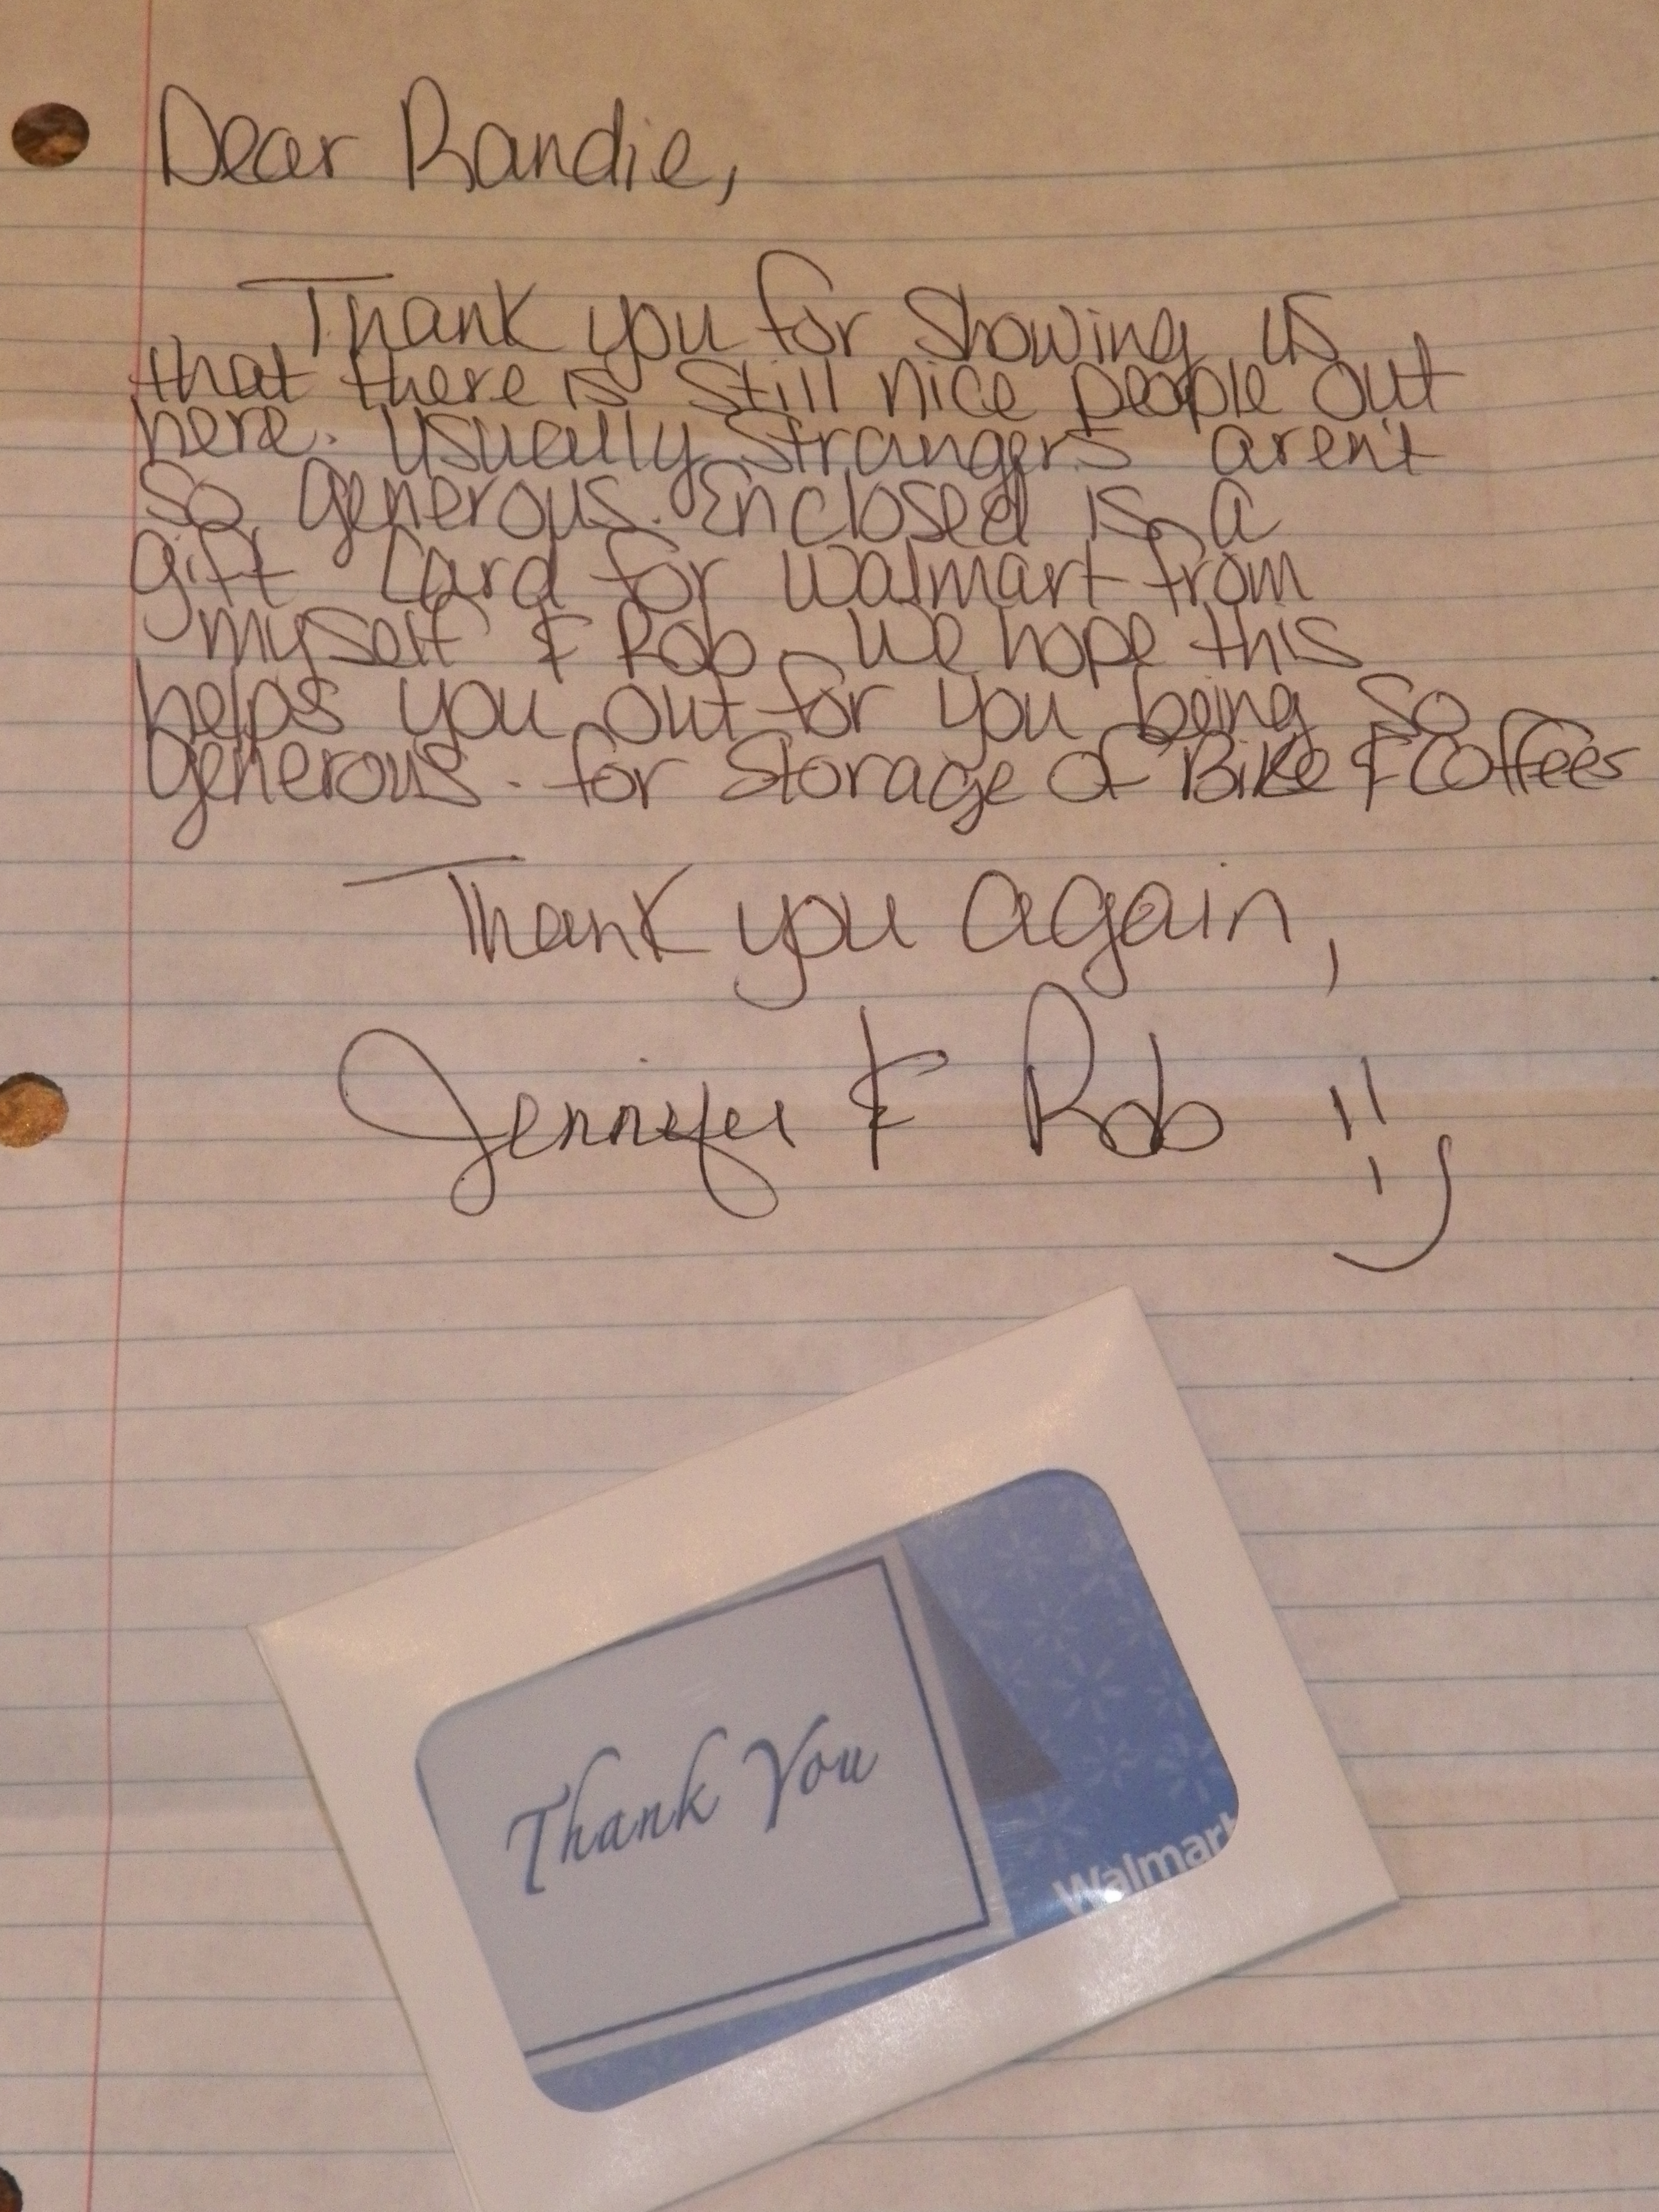 Dear Randie,
Thank you for showing us
that there is still nice people out
here. Usually strangers aren't
so generous. Enclosed is a
gift card for walmart from
myself & Rob. We hope this
helps you out for you being so
generous. for storage of Bike & Coffees
Thank you again,
Jennifer & Rob :)
Thank You
Walmart